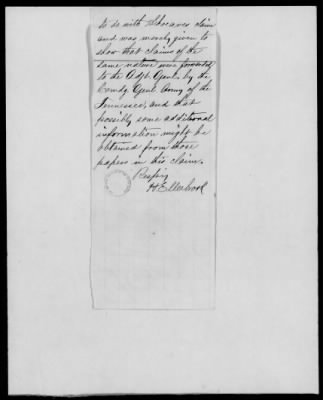 to do with Shreaves claim
and was merely given to
show that claims of the
same nature were forwarded
to the Adjt. Genl. by the
Comdg Genl. Army of the
Tennessee, and that
possibly some additional
information might be
obtained from those
papers in this claim.
Respy